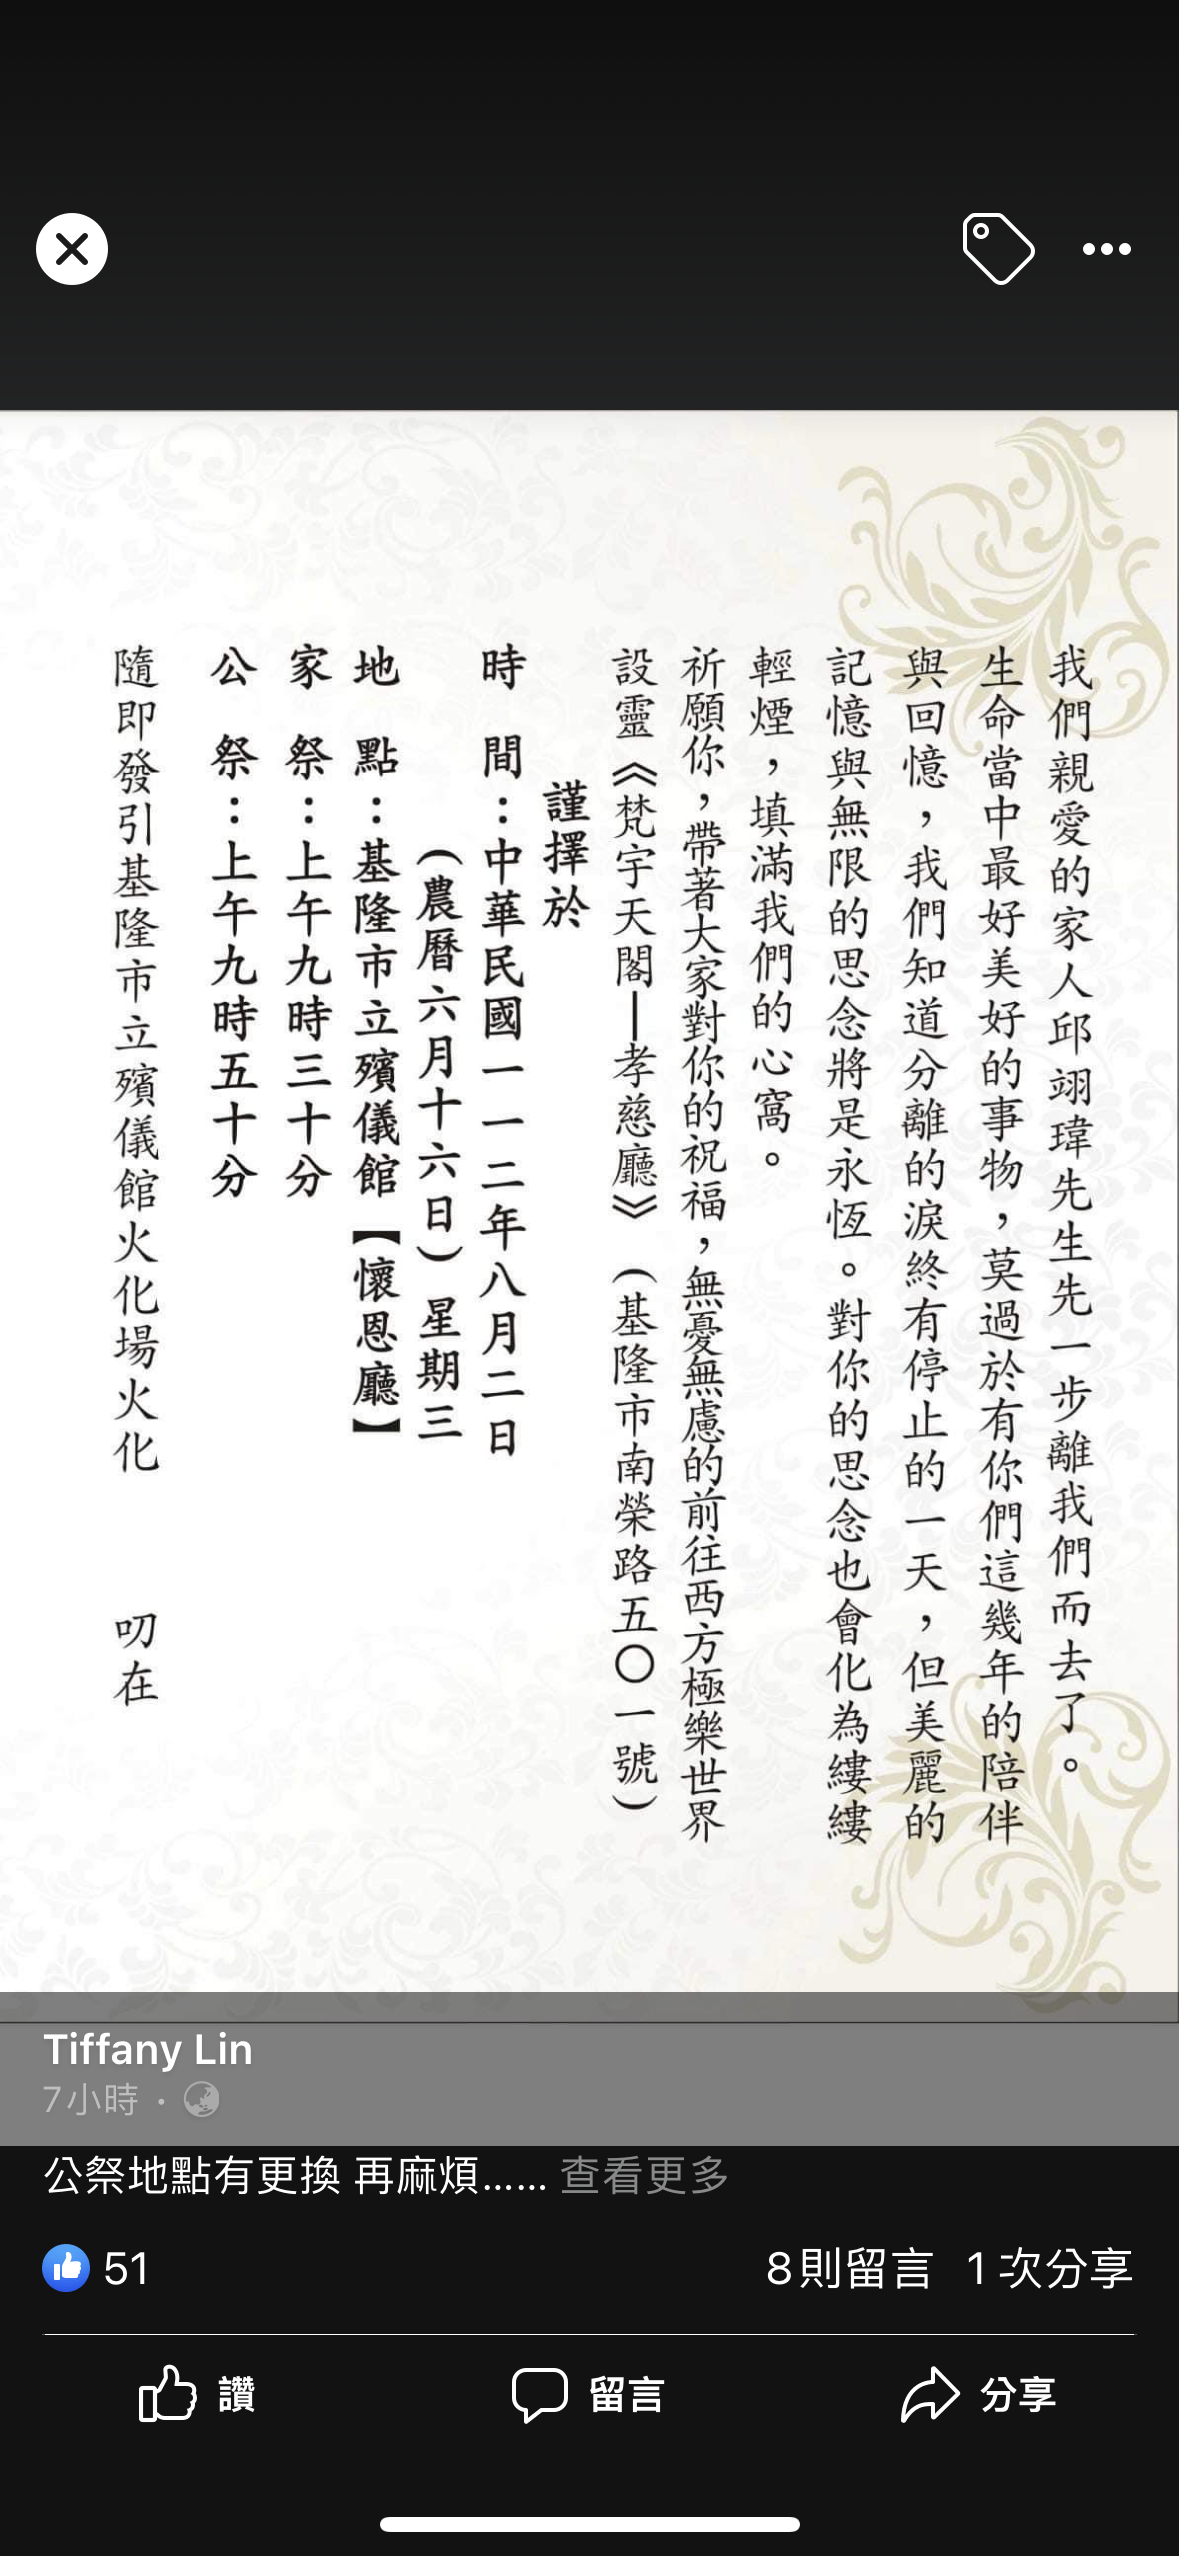 我們親愛的家人邱翊瑋先生先一步離我們而去了。
生命當中最好美好的事物，莫過於有你們這幾年的陪伴
與回憶，我們知道分離的淚終有停止的一天，但美麗的
記憶與無限的思念將是永恆。對你的思念也會化為縷縷
輕煙，填滿我們的心窩。
祈願你，帶著大家對你的祝福，無憂無慮的前往西方極樂世界
設靈《梵宇天閣—孝慈廳》（基隆市南榮路五〇一號）
謹擇於
時間：中華民國一一二年八月二日
（農曆六月十六日）星期三
地點：基隆市立殯儀館【懷恩廳】
家祭：上午九時三十分
公祭：上午九時五十分
隨即發引基隆市立殯儀館火化場火化 叨在
Tiffany Lin
7小時 ·
公祭地點有更換 再麻煩...... 查看更多
51 8則留言 1次分享
讚 留言 分享